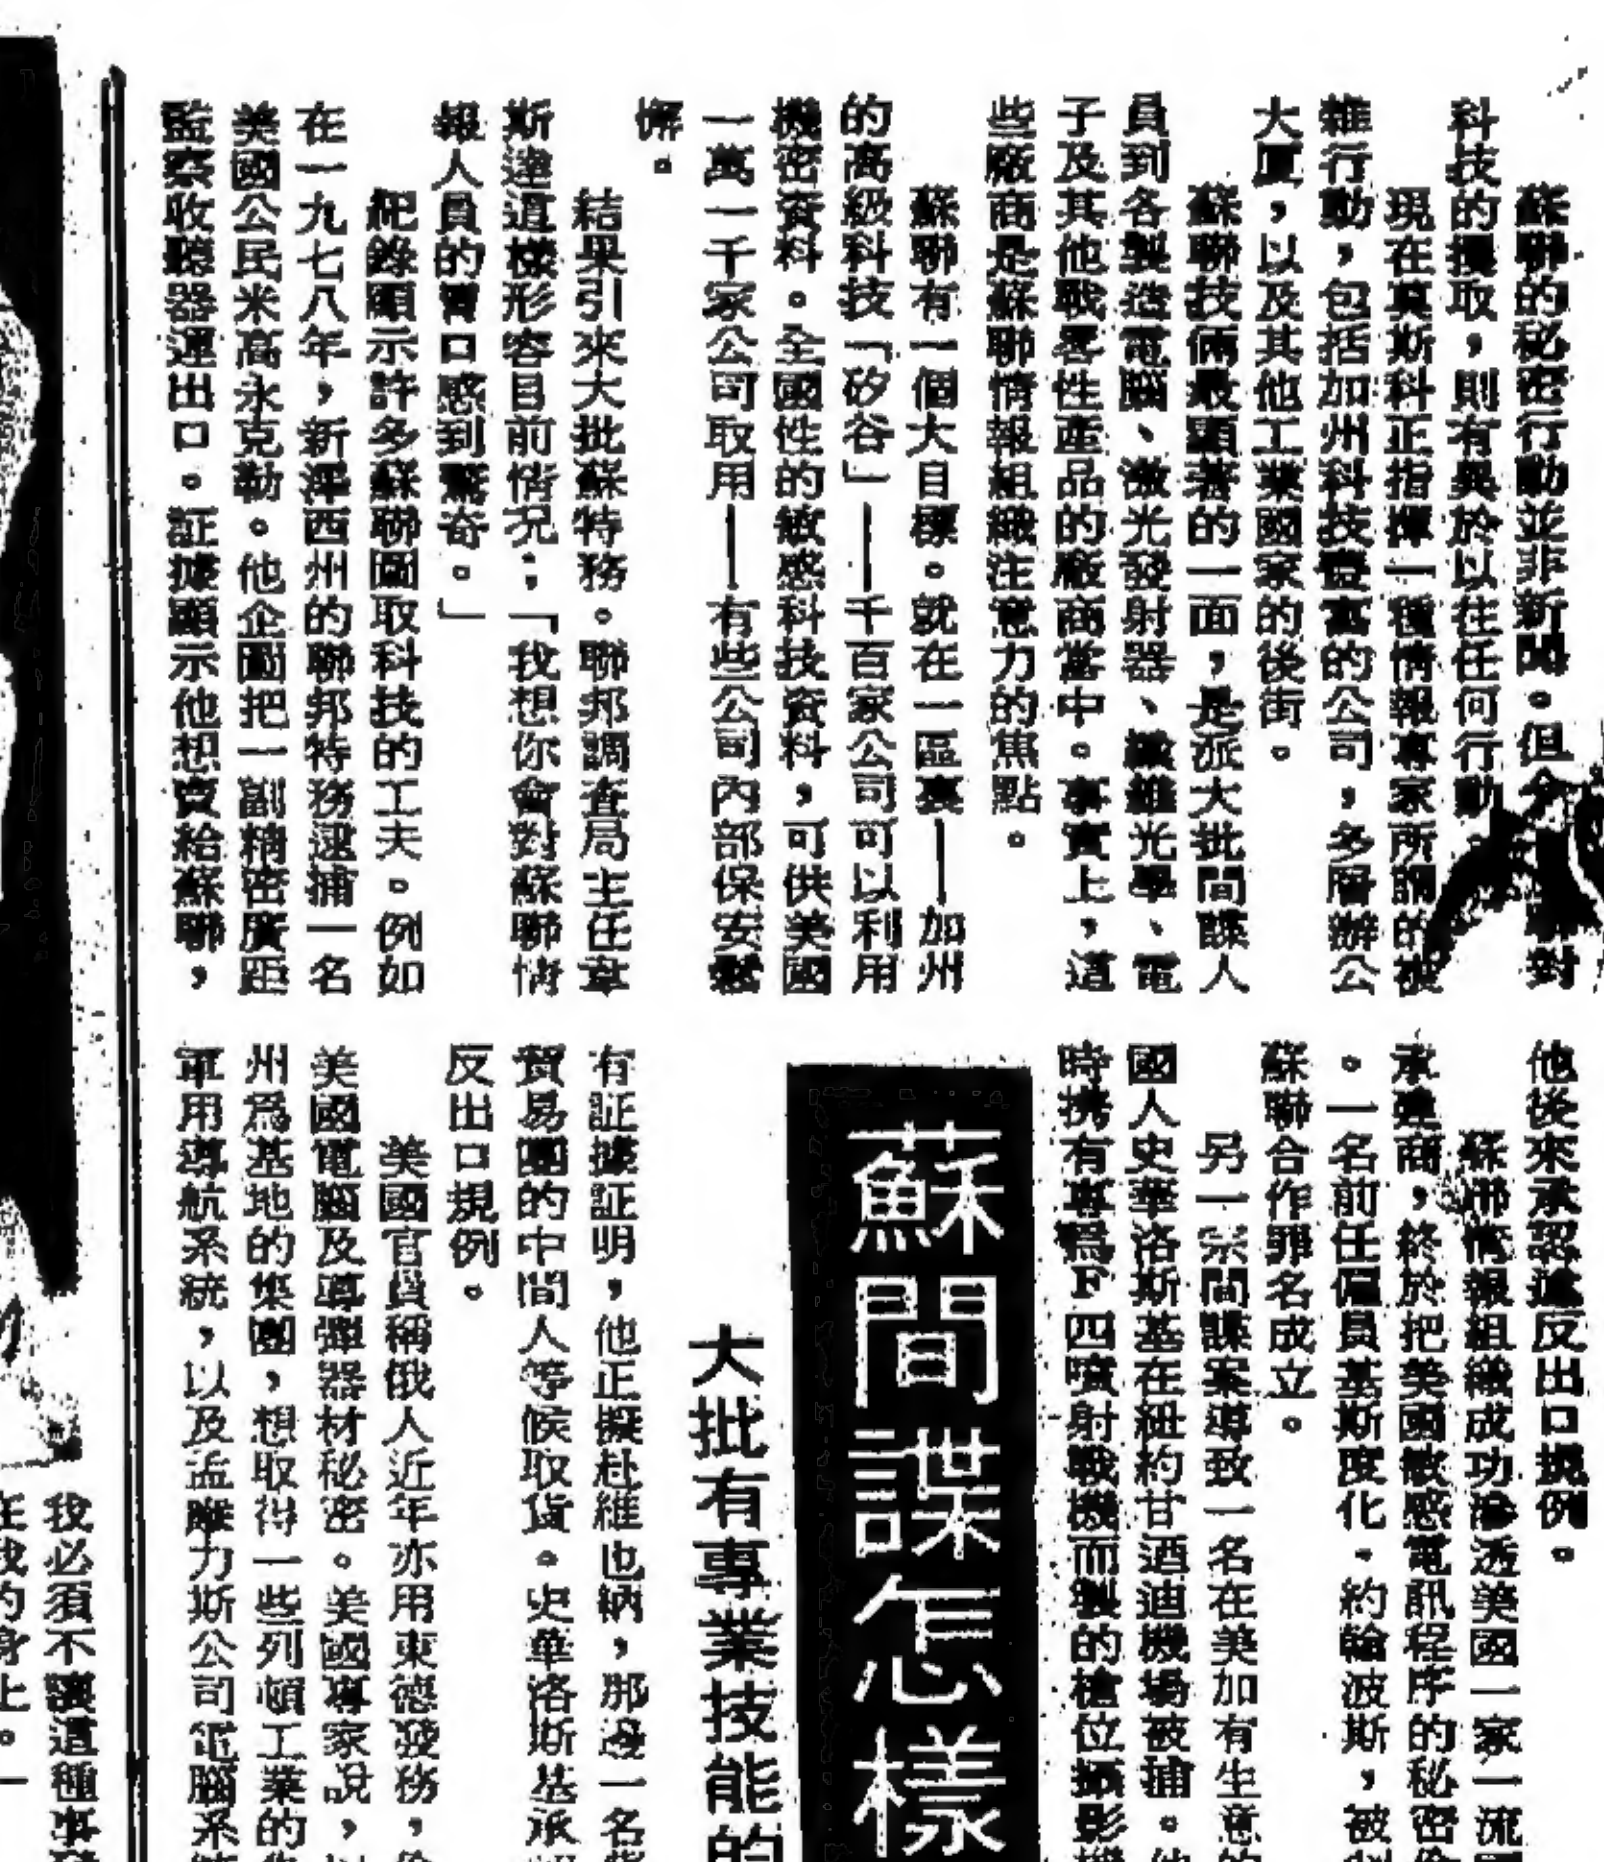 蘇聯的秘密行動並非新聞。但
科技的攫取，則有異於以往任何行動。
現在莫斯科正指揮一種情報專家所謂的
雜行動，包括加州科技豐富的公司，多層辦公
大厦，以及其他工業國家的後街。
蘇聯技倆最顯著的一面，是派大批間諜人
員到各製造電腦、激光發射器、纖維光學、電
子及其他戰畧性產品的廠商當中。事實上，這
些廠商是蘇聯情報組織注意力的焦點。
蘇聯有一個大目標。就在一區裏——加州
的高級科技「矽谷」——千百家公司可以利用
機密資料。全國性的敏感科技資料，可供美國
一萬一千家公司取用——有些公司內部保安鬆
懈。
結果引來大批蘇特務。聯邦調查局主任韋
斯達這樣形容目前情况：「我想你會對蘇聯情
報人員的胃口感到驚奇。」
紀錄顯示許多蘇聯圖取科技的工夫。例如
在一九七八年，新澤西州的聯邦特務逮捕一名
美國公民米高永克勒。他企圖把一副精密廣距
監察收聽器運出口。証據顯示他想賣給蘇聯，
他後來承認違反出口規例。
蘇聯情報組織成功滲透美國一家一流
承建商，終於把美國敏感電訊程序的秘密
。一名前任僱員基斯度化·約翰波斯，被
蘇聯合作罪名成立。
另一宗間諜案導致一名在美加有生意的
國人史華洛斯基在紐約甘迺迪機場被捕。他
時携有專為F四噴射戰機而製的槍位攝影機
蘇間諜怎樣
大批有專業技能的
有証據証明，他正擬赴維也納，那邊一名
貿易團的中間人等候取貨。史華洛斯基承
反出口規例。
美國官員稱俄人近年亦用東德發務，
美國電腦及導彈器材秘密。美國專家說，
州爲基地的集團，想取得一些列頓工業的
軍用導航系統，以及孟離力斯公司電腦系
我必須不讓這種事發
在我的身上。一